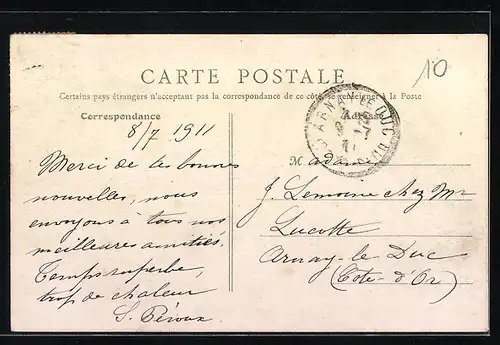 10
CARTE POSTALE
Certains pays étrangers n'acceptant pas la correspondance de ce côté se renseigner à la Poste
Correspondance
8/7 1911
Merci de tes bonnes
nouvelles, nous
envoyons à tous nos
meilleures amitiés.
Temps superbe,
trop de chaleur
S. Péroux
ARNAY-LE-DUC
Adresse
Madame
J. Lemoine chez Mr
Lucotte
Arnay-le-Duc
(Côte-d'Or)